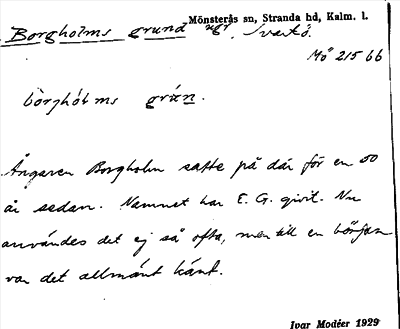 Mönsterås sn, Stranda hd, Kalm. l.
Borgholms grund ugr. Svartö.
Mö 215 66
bòrghól ms
Ångaren Borgholm satte på där för en 50
år sedan. Namnet har E. G. givit. Nu
användes det ej så ofta, men till en början
var det allmänt känt.
Ivar Modéer 1929